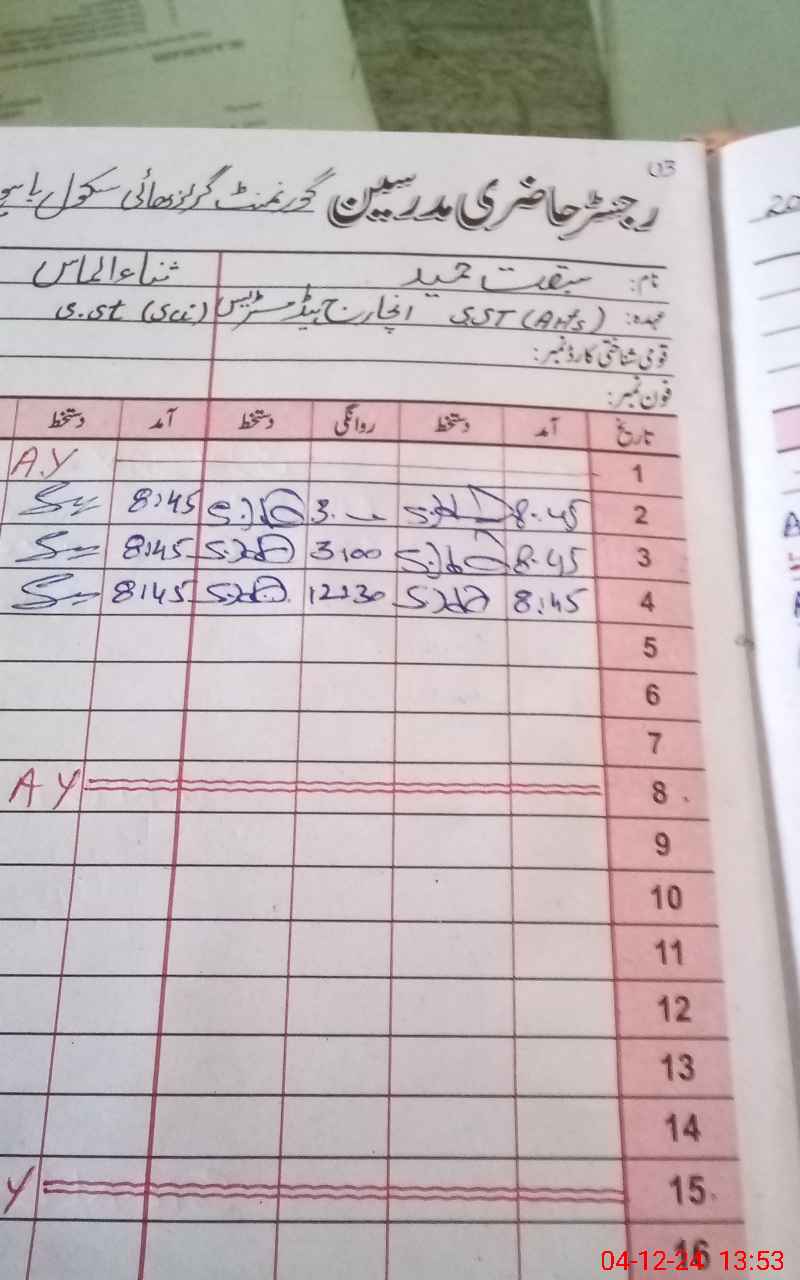 03
رجسٹر حاضری مدرسین گورنمنٹ گرلز ھائی سکول
20
نام: سبقت حمید ثناء الماس
عہدہ: S.ST (Arts) انچارج ہیڈ مسٹریس S.St (Sci)
قومی شناختی کارڈ نمبر:
فون نمبر:
تاریخ آمد دستخط روانگی دستخط آمد دستخط
1 A.Y
2 8.45 3. 8:45
3 8.45 3:00 8:45
4 8:45 12:30 8:45
5
6
7
8 A Y
9
10
11
12
13
14
15 Y
16
04-12-24 13:53